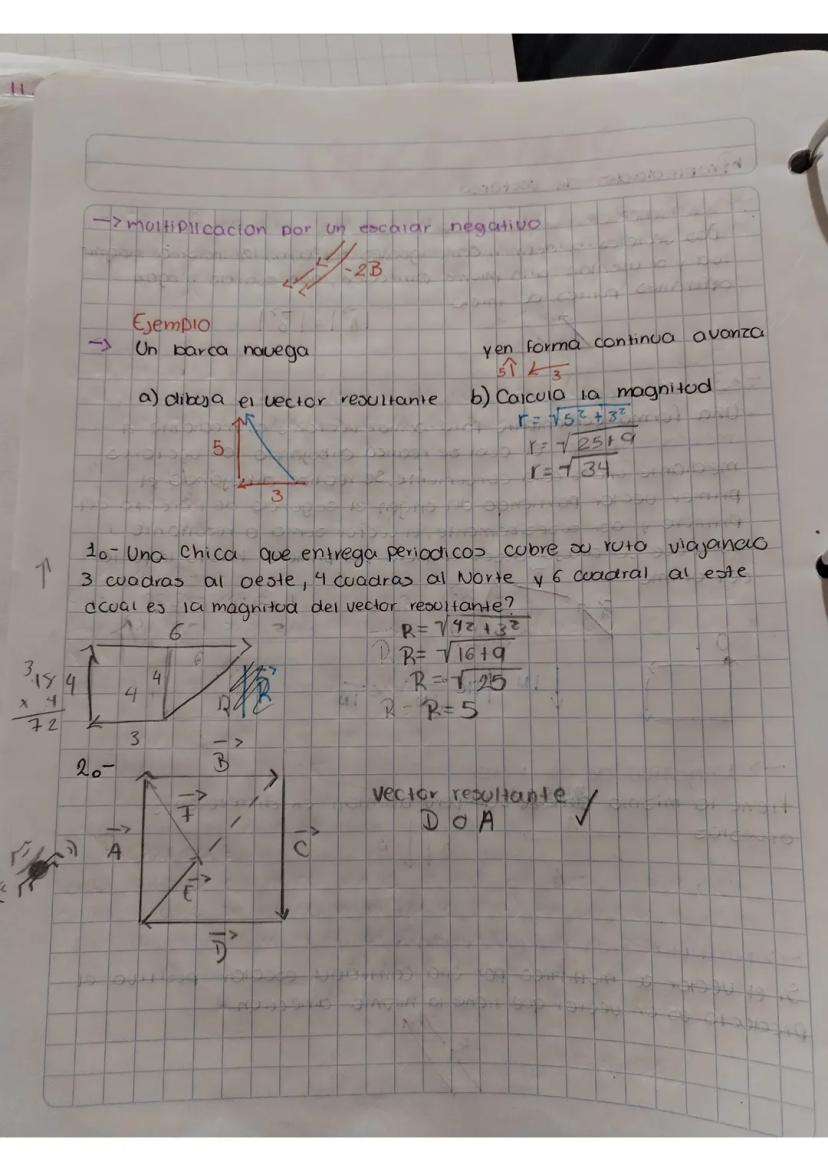 11.
→ multiplicacion por un escalar negativo
-2B
Ejemplo
→ Un barca navega yen forma continua avanza
5↑ ← 3
a) dibuja el vector resultante b) Calcula la magnitud
r = √5² + 3²
5 r = √25+9
r = √34
3
1o- Una chica que entrega periodicos cubre su ruta viajando
3 cuadras al oeste, 4 cuadras al Norte y 6 cuadral al este
¿cual es la magnitud del vector resultante?
6 R = √4² + 3²
R = √16+9
4 4 4 R R = √25
R = 5
3
18
x 4
72
2o- B
vector resultante ✓
F D o A
A C
E
D